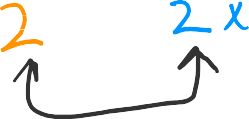 2 2x